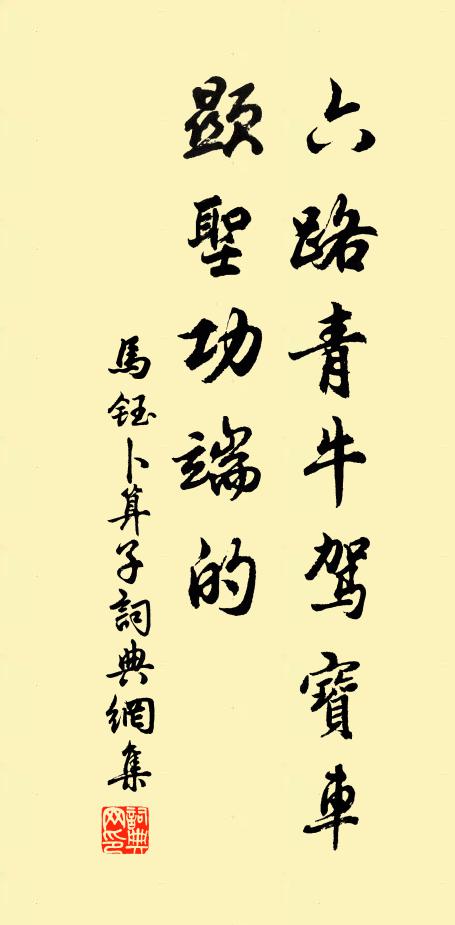 六路青牛駕寶車
顯聖功端的
馬鈺卜算子詞典網集
詞典網印